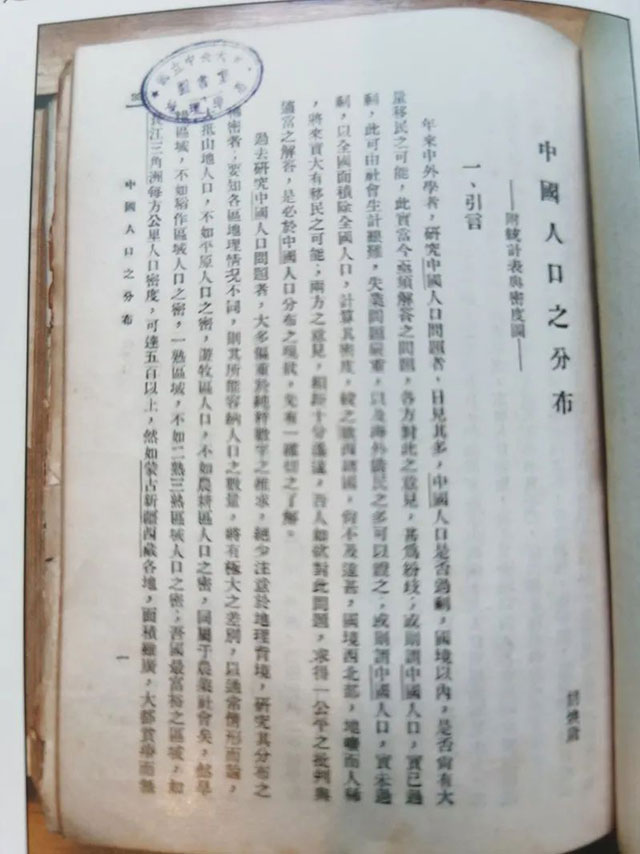 中國人口之分布
——附統計表與密度圖——
胡煥庸
一、引言
年來中外學者，研究中國人口問題者，日見其多，中國人口是否過剩，國境以內，是否尚有大
量移民之可能，此實當今亟須解答之問題，各方對此之意見，甚為紛歧，或則謂中國人口，實已過
剩，此可由社會生計艱難，失業問題嚴重，以及海外僑民之多可以證之，或則謂中國人口，實未過
剩，以全國面積除全國人口，計算其密度，較之歐西諸國，尚不及遠甚，國境西北部，地曠而人稀
，將來實大有移民之可能；兩方之意見，相距十分遙遠，吾人如欲對此問題，求得一公平之批判與
適當之解答，是必於中國人口分布之現狀，先有一確切之了解。
過去研究中國人口問題者，大多偏重於純粹數字之推求，絕少注意於地理背境，研究其分布之
稀密者；要知各區地理情況不同，則其所能容納人口之數量，將有極大之差別，以通常情形而論，
抵山地人口，不如平原人口之密，游牧區人口，不如農耕區人口之密，同屬于農業社會矣，然旱
區域，不如稻作區域人口之密，一熟區域，不如二熟三熟區域人口之密；吾國最富裕之區域，如
江三角洲每方公里人口密度，可達五百以上，然如蒙古新疆西藏各地，面積雖廣，大都貧瘠而無
中國人口之分布
一
國立中央大
圖書室
理學